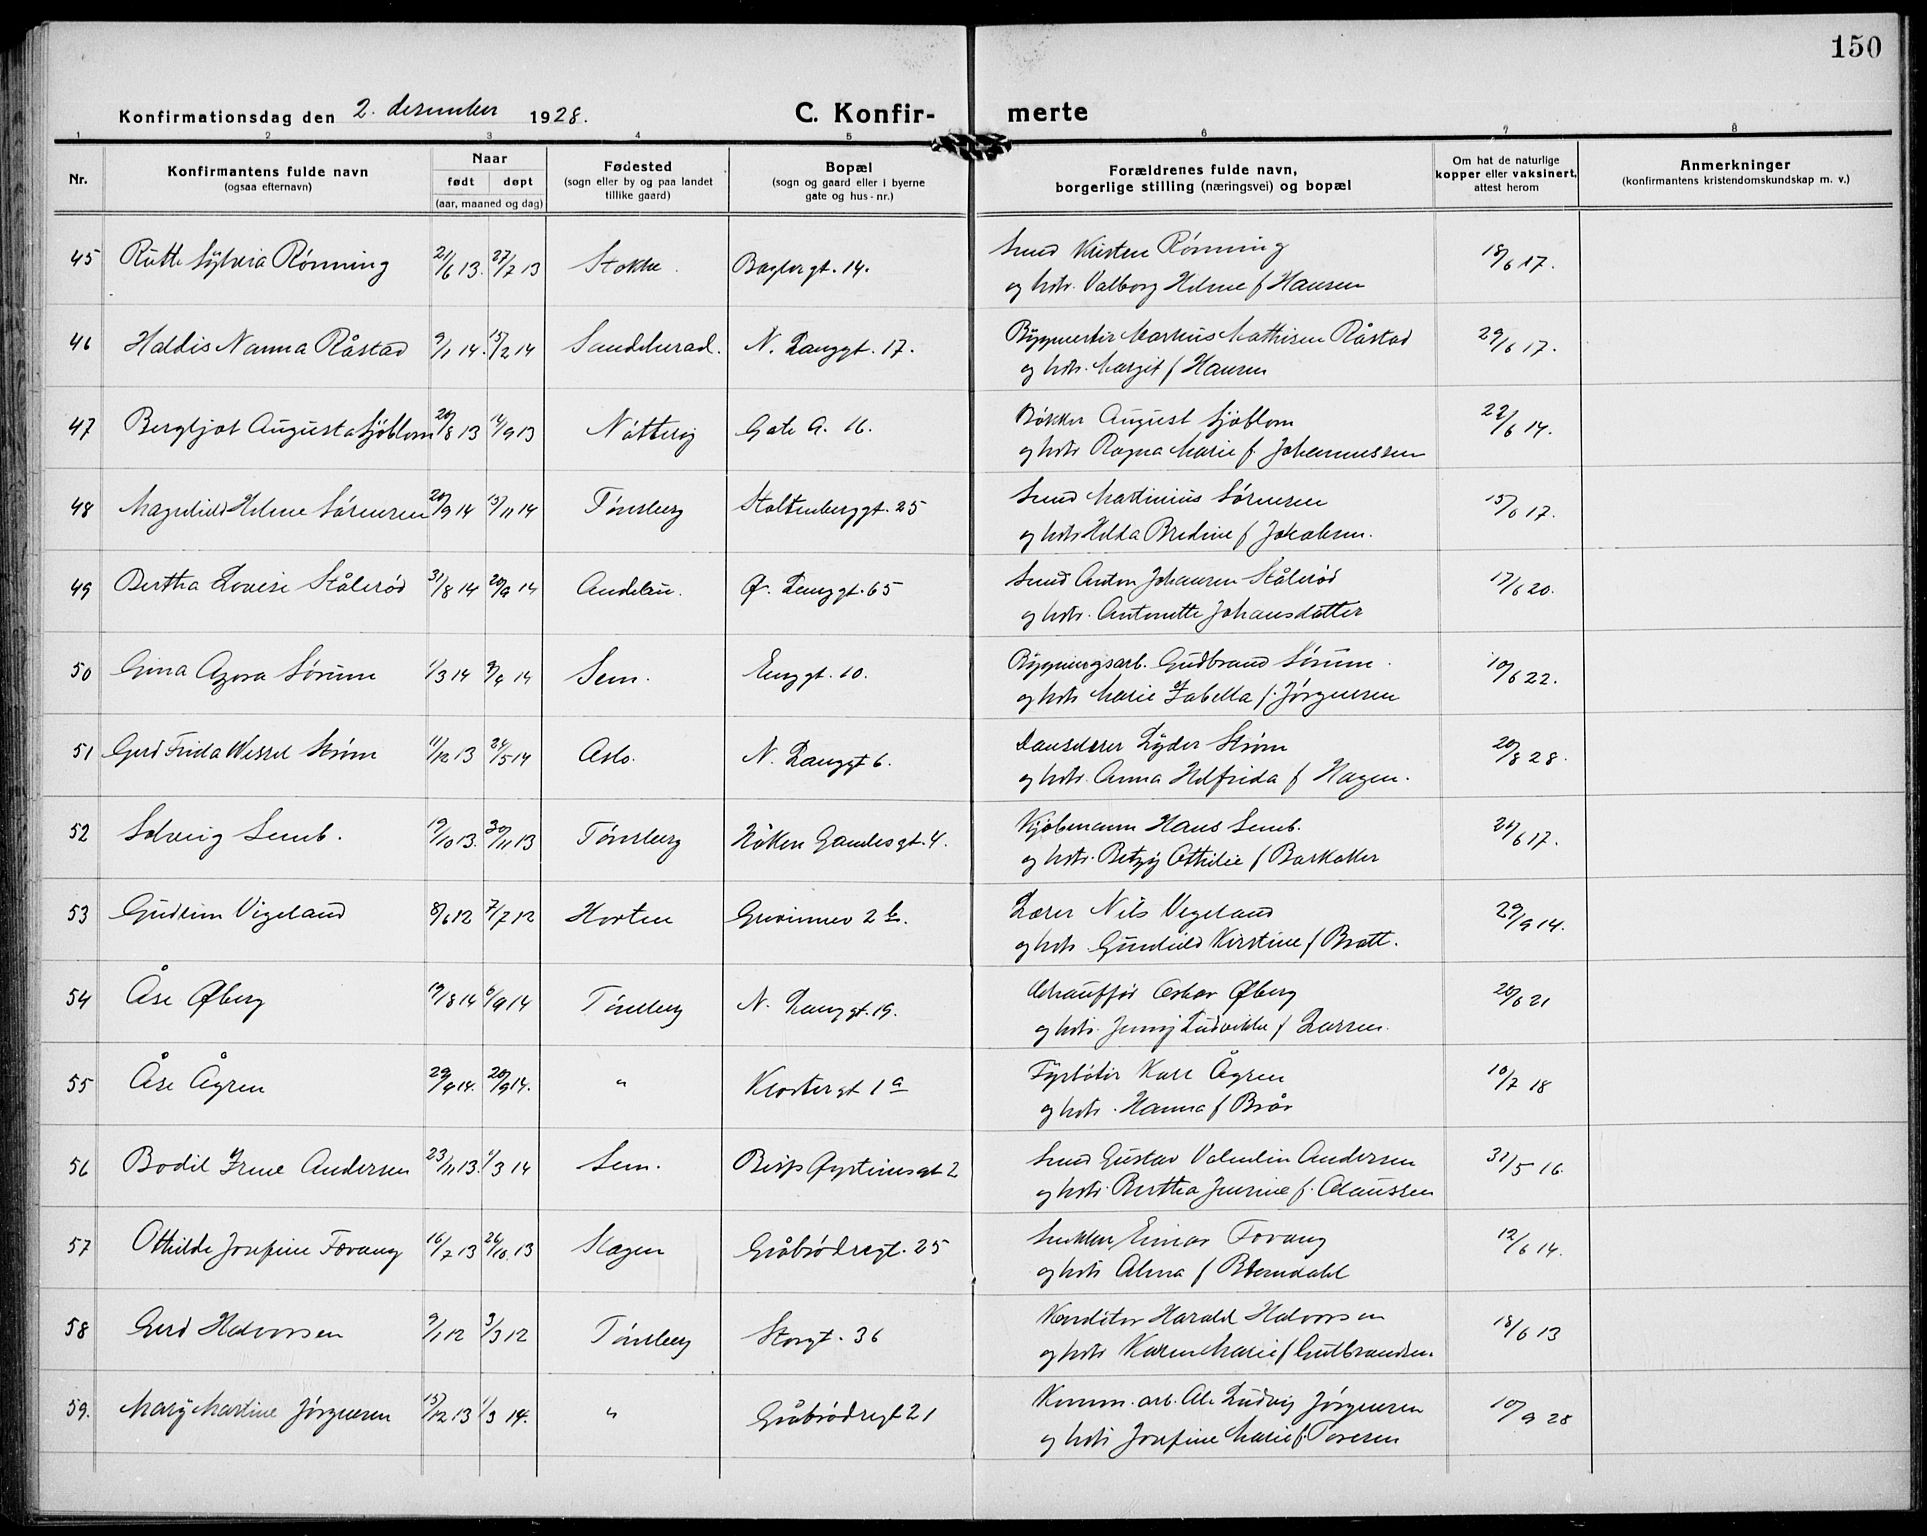 150
Konfirmationsdag den 2. desember 1928.
C. Konfir- merte
1 2 3 4 5 6 7 8
Nr.
Konfirmantens fulde navn
(ogsaa efternavn)
Naar
født døpt
(aar, maaned og dag)
Fødested
(sogn eller by og paa landet
tillike gaard)
Bopæl
(sogn og gaard eller i byerne
gate og hus-nr.)
Forældrenes fulde navn,
borgerlige stilling (næringsvei) og bopæl
Om hat de naturlige
kopper eller vaksinert,
attest herom
Anmerkninger
(konfirmantens kristendomskundskap m. v.)
45 Ruth Sylvia Rønning 21/6 13. 27/7 13 Stokke. Baglergt. 14. Smed Kristen Rønning 18/6 17.
og hstr. Valborg Helene f Hansen
46 Haldis Nanna Råstad 9/1 14. 15/2 14 Sandeherad. N. Langgt. 17. Byggmester Markus Mathisen Råstad 29/6 17.
og hstr. Margit f Hansen
47 Bergljot Augusta Sjöblom 20/8 13 14/9 13 Nøtterøy Gate A. 16. Bøkker August Sjöblom 22/6 14.
og hstr Ragna Marie f. Johannessen
48 Magnhild Helene Sørensen 20/9 14 15/11 14 Tønsberg Stoltenberggt. 25 Smed Martinius Sørensen 15/6 17.
og hstr Hilda Bredine f Jakobsen.
49 Bertha Lovise Stålerød 31/8 14 20/9 14 Andebu. Ø. Langgt. 65 Smed Anton Johansen Stålerød 17/6 20.
og hstr. Antonette Johansdatter
50 Gina Azora Sørum 1/3 14 9/4 14 Sem. Enggt. 10. Bygningsarb. Gudbrand Sørum. 10/6 22.
og hstr Marie Isabella f. Jørgensen
51 Gerd Frida Wessel Strøm 11/12 13 24/5 14 Oslo. N. Langgt 6. Danselærer Lyder Strøm 20/8 28.
og hstr. Anna Helfrida f Hagen.
52 Solveig Semb. 19/10 13. 30/11 13 Tønsberg Håken Gamlesgt. 4. Kjøbmann Hans Semb. 26/6 17.
og hstr. Betzy Othilie f Barkåker
53 Gudrun Vigeland 8/6 12 7/7 12 Horten 2 b. Lærer Nils Vigeland 29/9 14.
og hstr Gunhild Kirstine f Bratt.
54 Åse Øberg 19/8 14 6/9 14 Tønsberg N. Langgt. 19. Chauffør Oskar Øberg 20/6 21
og hstr. Jenny Ludvikke f Larsen.
55 Åse Ågren 29/4 14. 20/9 14. " Klostergt 1a Fyrbøter Karl Ågren 10/7 18
og hstr. Hanna f Brår
56 Bodil Irene Andersen 23/11 13. 1/3 14 Sem. Bisp Øysteinsgt 2 Smed Gustav Valentin Andersen 31/5 16.
og hstr. Bertha Jensine f. Claussen
57 Othilde Josefine Forang 16/7 13 26/10. 13 Slagen Gråbrødregt. 25 Snekker Einar Forang 12/6 14.
og hstr Alma f Blomdahl
58 Gerd Halvorsen 9/1 12 3/3 12 Tønsberg Storgt. 36 Konditor Harald Halvorsen 18/6 13
og hstr Karen Marie f Gulbrandsen.
59. Mary Martine Jørgensen 15/12 13 1/3 14. " Gråbrødregt 21 Komm. arb. Ole Ludvig Jørgensen 10/9 28
og hstr Josefine Marie f. Toresen